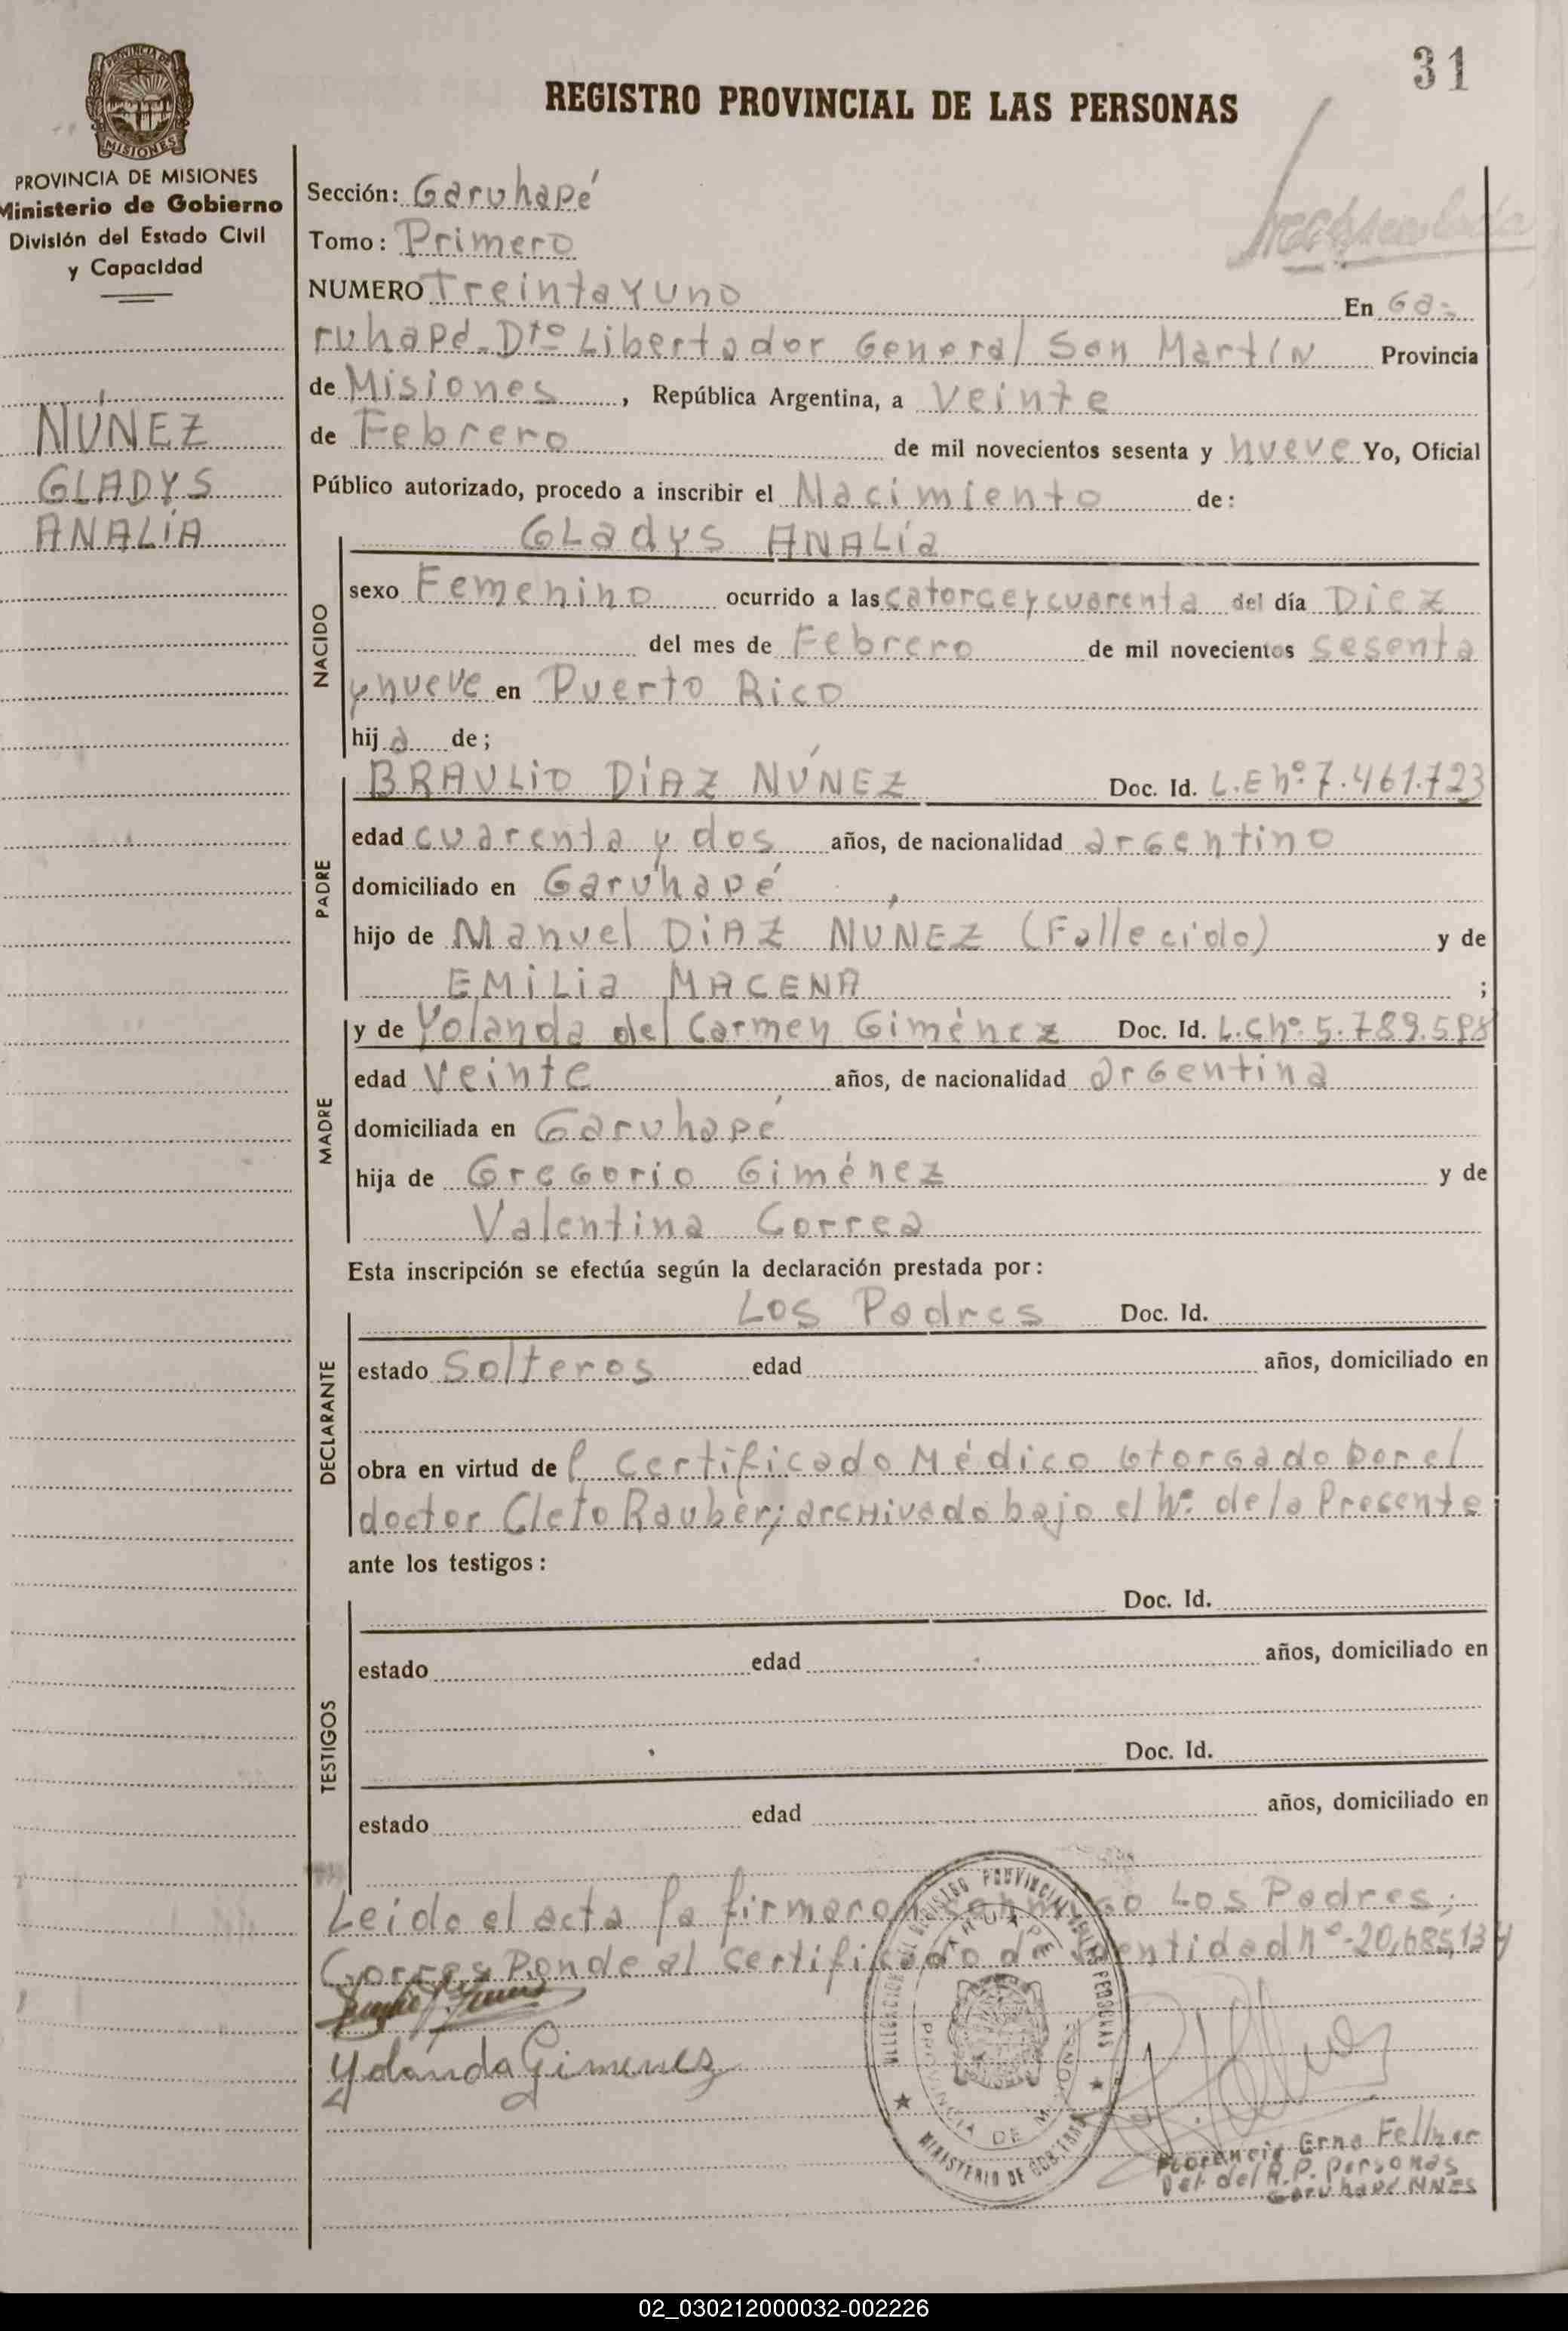 31
REGISTRO PROVINCIAL DE LAS PERSONAS
PROVINCIA DE MISIONES
PROVINCIA DE MISIONES
Ministerio de Gobierno
División del Estado Civil
y Capacidad
NÚÑEZ
GLADYS
ANALÍA
Sección: Garuhapé
Tomo: Primero
NUMERO Treinta y uno En Ga-
ruhapé-Dto Libertador General San Martín Provincia
de Misiones, República Argentina, a Veinte
de Febrero de mil novecientos sesenta y nueve Yo, Oficial
Público autorizado, procedo a inscribir el Nacimiento de:
NACIDO
GLadys ANALía
sexo Femenino ocurrido a las catorce y cuarenta del día Diez
del mes de Febrero de mil novecientos sesenta
y nueve en Puerto Rico
hija de;
PADRE
BRAULIO DÍAZ NÚÑEZ Doc. Id. L.E nº 7.461.723
edad cuarenta y dos años, de nacionalidad argentino
domiciliado en Garuhapé
hijo de Manuel DIAZ NÚÑEZ (Fallecido) y de
EMILIA MACENA ;
MADRE
y de Yolanda del Carmen Giménez Doc. Id. L.C nº 5.789.598
edad Veinte años, de nacionalidad argentina
domiciliada en Garuhapé
hija de Gregorio Giménez y de
Valentina Correa
Esta inscripción se efectúa según la declaración prestada por:
DECLARANTE
Los Padres Doc. Id.
estado Solteros edad años, domiciliado en
obra en virtud del certificado Médico otorgado por el
doctor Cleto Rauber; archivado bajo el Nº de la Presente
ante los testigos:
TESTIGOS
Doc. Id.
estado edad años, domiciliado en
Doc. Id.
estado edad años, domiciliado en
Leido el acta la firmaron conmigo Los Padres;
Corresponde al certificado de identidad nº-20,685,134
Yolanda Gimenez
DELEGACION DEL REGISTRO PROVINCIAL DE LAS PERSONAS
GARUHAPE
PROVINCIA DE MISIONES
MINISTERIO DE GOBIERNO
Florencia Erna Fellner
Del. del R.P. personas
Garuhapé MNES
02_030212000032-002226